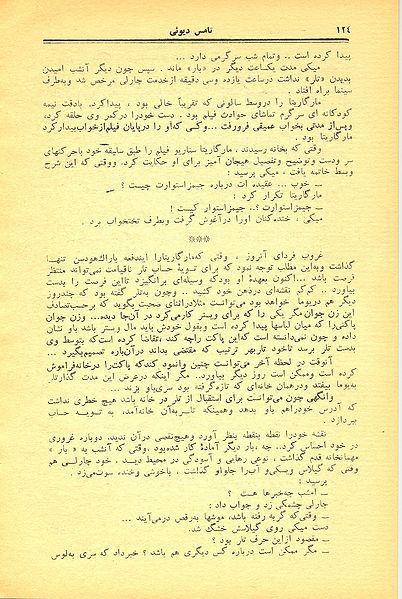 ۱۲٤
تامس دیوئی
پیدا کرده است .. وتمام شب سرگرمی دارد ...
میکی مدت یکساعت دیگر در «بار» ماند . سپس چون دیگر آنشب امیدن
بدیدن «تلر» نداشت درساعت یازده وسی دقیقه ازخدمت چارلی مرخص شد وبه‌طرف
سینما براه افتاد .
مارگاریتا را دروسط سالونی که تقریباً خالی بود ، پیداکرد. بادقت نیمه
کودکانه ای سرگرم تماشای حوادث فیلم بود . دست خودرا درکمر وی حلقه کرد،
وپس‌از مدتی بخواب عمیقی فرورفت ...وکسی که‌او را درپایان فیلم ازخواب‌بیدارکرد
مارگاریتا بود .
وقتی که بخانه رسیدند، مارگاریتا سناریو فیلم را طبق سلیقه خود باحرکتهای
سر ودست وتوضیح وتفصیل هیجان آمیز برای او حکایت کرد. ووقتی که این شرح
وبسط خاتمه یافت ، میکی پرسید :
ــ خوب ... عقیده ات درباره جیمزاستوارت چیست ؟
مارگاریتا تکرار کرد :
ــ جیمزاستوارت ؟.. جیمزاستوار کیست !
میکی ، خنده‌کنان اورا درآغوش گرفت وبطرف تختخواب برد .
***
غروب فردای آنروز ، وقتی که‌مارگاریتارا ایندفعه باراك‌هودسن تنهـا
گذاشت وبه‌این مطلب توجه نبود که برای تسویهٔ حساب تلر تاقیامت نمی‌تواند منتظر
فرصت باشد ...اکنون بعهدهٔ او بودکه وسیله‌ای برانگیزد تااین فرصت را بدست
بیاورد .. کم‌کم نقشه‌ای درذهن خود کشید .. وچون به‌تلر گفته بود که چندروز
دیگر هم درپوما خواهد بود می‌توانست مثلادراثنای صحبت بگوید که برحسب‌تصادف
این زن جوان مگر یکی را که برای ویستر کارمی‌کرد در آن‌جا دیده... وزن جوان
پاکتی‌را که میان لباسها پیدا کرده است وبقول خودش باید مال ویستر باشد باو نشان
داده و چون نمی‌دانسته است که‌این پاکت راچه کند ،تقاضا کرده است‌که بتوسط وی
بدست تلر برسد تاخود تلربهر ترتیب که مقتضی بداند درآن‌باره تصمیم‌بگیرد ...
آنوقت در لحظه آخر می‌توانست چنین وانمود کندکه پاکت‌را درخانه‌فراموش
کرده است وممکن است روز دیگر بیاورد.. مگر اینکه درعرض این مدت گذارتلر
به‌پوما بیفتد ودرهمان خانه‌ای که تازه‌گرفته بود سری‌باو بزند ..
وانگهی چون می‌توانست برای استقبال از تلر در خانه باشد هیچ خطری نداشت
که آدرس خودراهم باو بدهد وهمینکه تلربه‌آن خانه‌آمد، به تسویـه حساب
بپردازد .
نقشه خودرا نقطه بنقطه بنظر آورد وهیچ‌نقصی درآن ندید. دوباره غروری
در خود احساس کرد.. چه ،بار دیگر آمادهٔ کار شده‌بود .وقتی که آنشب به « بار »
مهمانخانه قدم گذاشت ، نوعی رهایی و آسودگی در محیط دیـد . خود چارلی هم
وقتی که گیلاس ویسکی‌و آب‌را جلواو گذاشت ، باخوشی وخنده سوت‌می‌زد .
پرسید :
ــ امشب چه‌خبرها هست ؟
چارلی چشمکی زد و جواب داد :
ــ وقتی‌که گربه رفته باشد، موشها به‌رقص درمی‌آیند ...
دست میکی روی گیلاسش خشک شد.
ــ مقصود ازاین حرف تلر بود ؟
ــ مگر ممکن است درباره کس دیگری هم باشد ؟ خبرداد که سری به‌لوس